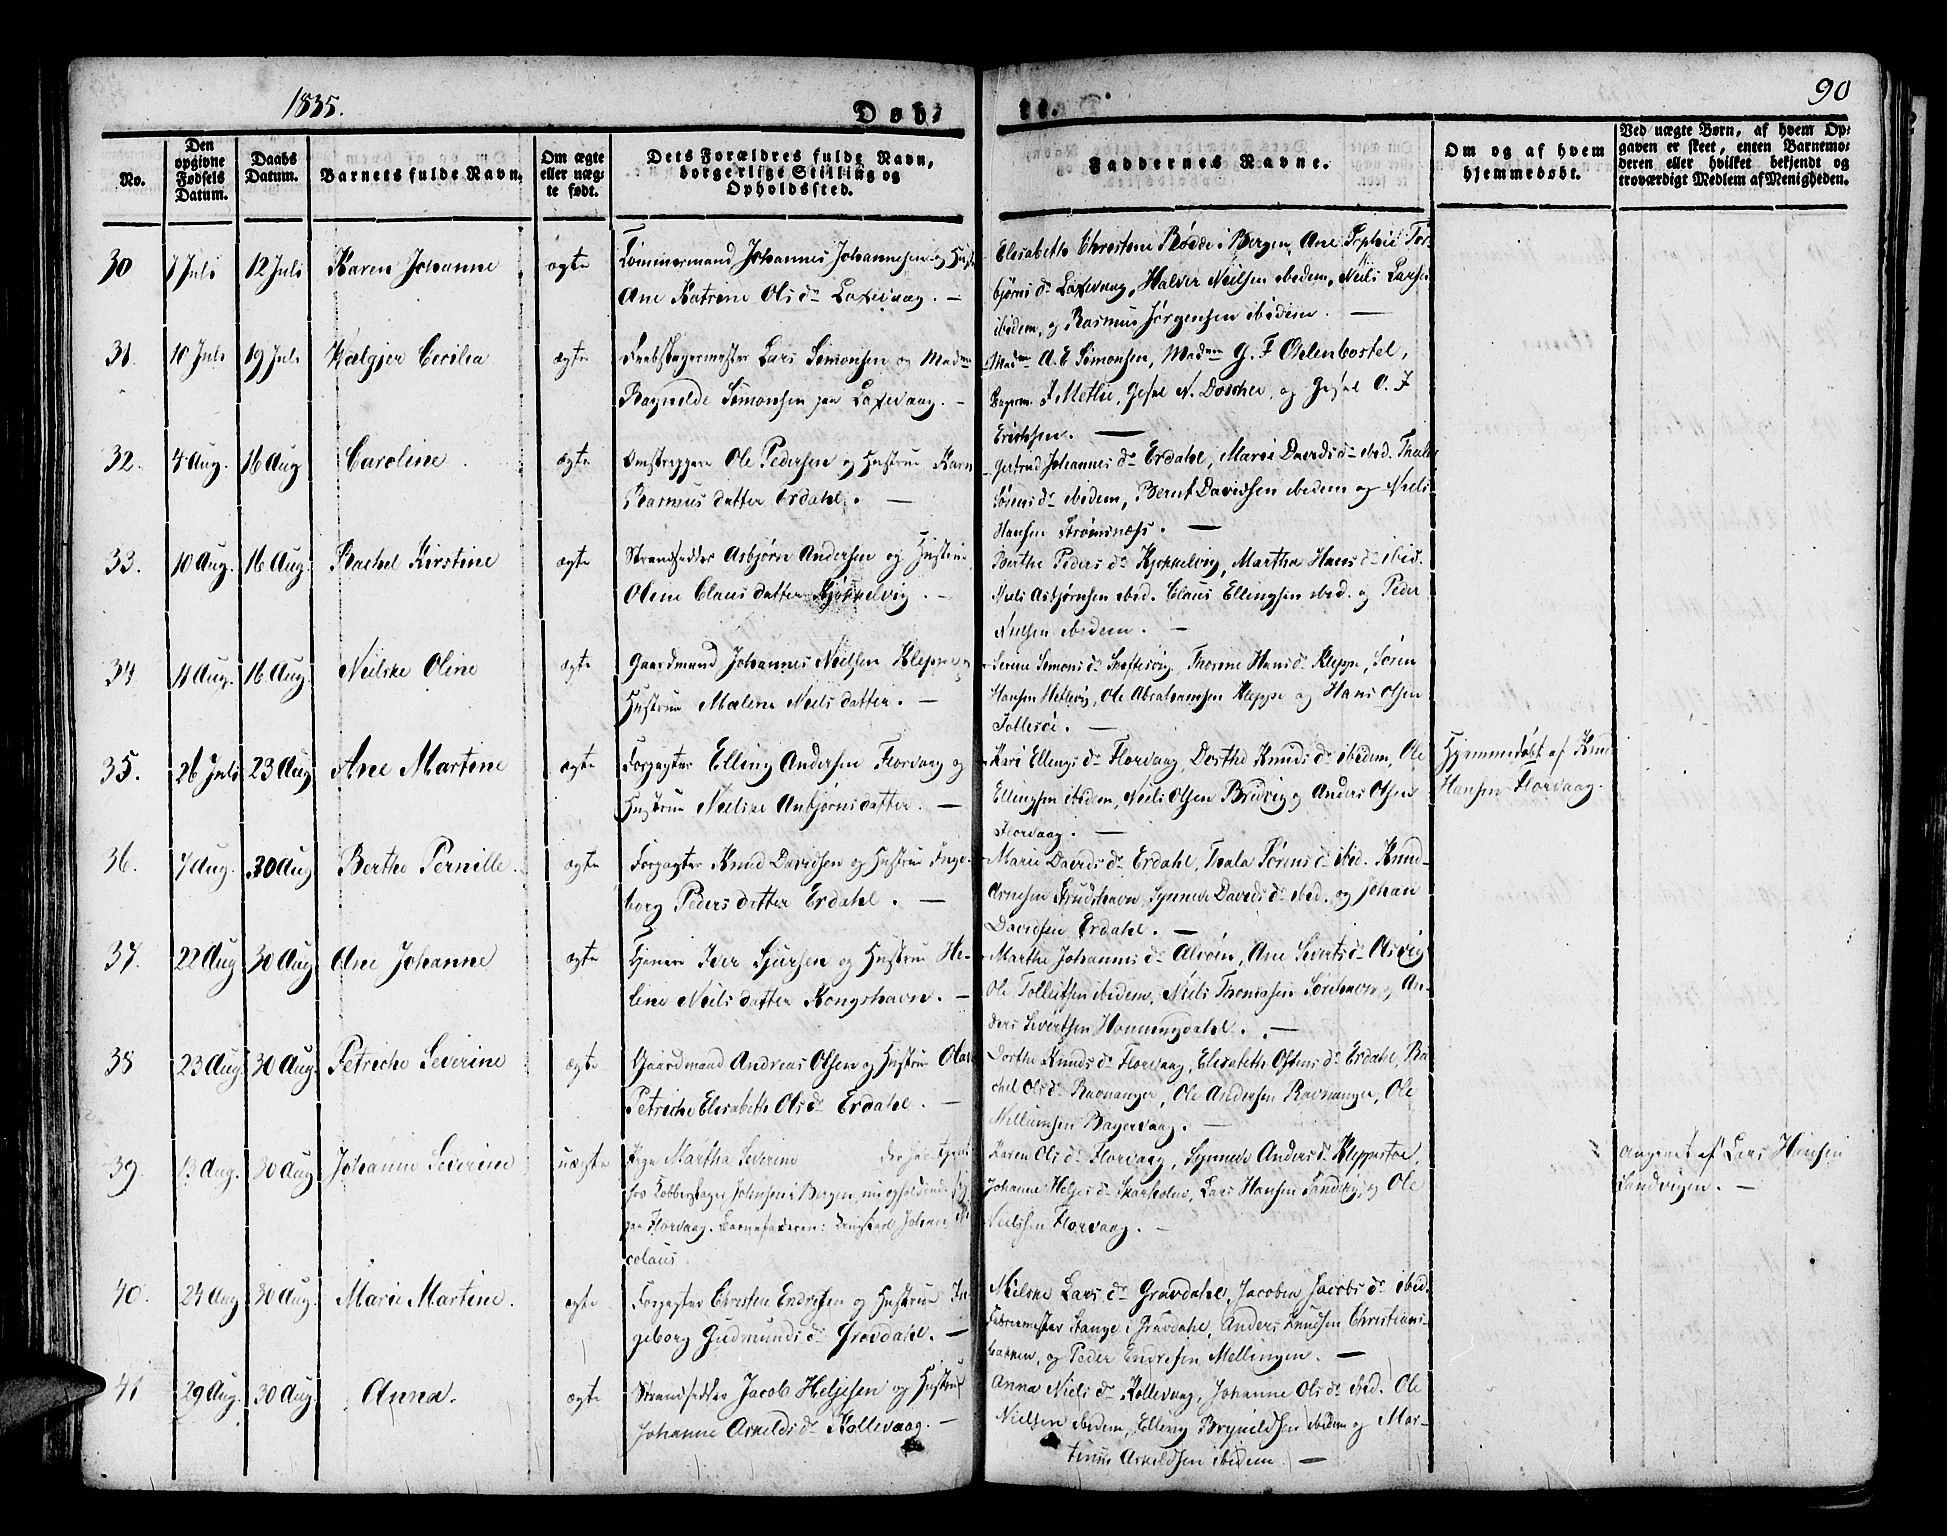 1835.
Døbte.
90
No.
Den opgivne Fødsels Datum.
Daabs Datum.
Barnets fulde Navn.
Om ægte eller uægte født.
Dets Forældres fulde Navn, borgerlige Stilling og Opholdssted.
Faddernes Navne.
Om og af hvem hjemmedøbt.
Ved uægte Børn, af hvem Opgaven er skeet, enten Barnemoderen eller hvilket bekjendt og troværdigt Medlem af Menigheden.
30 7 Juli 12 Juli Karen Johanne ægte Tømmermand Johannes Johannesen og Hustr
Ane Katrine Olsdr Laxevaag. —
Elisabeth Christine Rødde i Bergen, Ane Sophie Tor-
bjørnsdr Laxevaag, Halver Nielsen ibidem, Niels Larsen
ibidem, og Rasmus Jørgensen ibidem. —
31. 10 Juli 19 Juli Valgjer Cecilia ægte Reebslagermester Lars Simonsen og Madme
Ragnilde Simonsen paa Laxevaag. —
Madme A. E Simonsen, Madme G. F Ohlenbostel,
J Methie, N. Doscher, og O. J
Erichsen. —
32. 4 Aug. 16 Aug Caroline ægte Ole Pedersen og Hustrue Karn
Rasmusdatter Erdahl. —
Gertrud Johannesdr Erdahl, Marie Davidsdr ibid. Thala
Sørensdr ibidem, Bernt Davidsen ibidem og Niels
Hansen Strømsnæss. —
33. 10 Aug. 16 Aug. Rachel Kirstine ægte Strandsidder Asbjørn Andersen og Hustrue
Oline Clausdatter Kjøkkelvig. —
Berthe Pedersdr Kjøkkelvig, Martha Hansdr ibid.
Niels Asbjørnsen ibid. Claus Ellingsen ibid. og Peder
Nielsen ibidem. —
34 11 Aug. 16 Aug. Nielske Oline ægte Gaardmand Johannes Nielsen Kleppe og
Hustrue Malene Nielsdatter. —
Serine Simonsdr Skiftesvig, Thorine Hansdr Kleppe, Sören
Hansen Hetlevig, Ole Abrahamsen Kleppe og Hans Olsen
Follesøe. —
35. 26 Juli 23 Aug Ane Martine ægte Forpagter Elling Andersen Florvaag og
Hustrue Nielske Anbjørnsdatter. —
Kari Ellingsdr Florvaag, Dorthe Knudsdr ibidem, Ole
Ellingsen ibidem, Niels Olsen Bredvig og Anders Olsen
Florvaag. —
Hjemmedøbt af Knud
Hansen Florvaag.
36. 7 Aug. 30 Aug Berthe Pernille. ægte Forpagter Knud Davidsen og Hustrue Inge-
borg Pedersdatter Erdahl. —
Marie Davidsdr Erdahl, Thala Sørensdr ibid. Knud
Arnesen Strudshavn, Synneve Davidsdr ibid. og Johan
Davidsen Erdahl. —
37. 22 Aug 30 Aug. Ane Johanne ægte Iver Sjursen og Hustrue He-
line Nielsdatter Kongshavn. —
Marthe Johannesdr Alvøen, Ane Sivertsdr Olsvig
Ole Tolleifsen ibidem, Niels Thomasen og An-
ders Sivertsen Honningdahl. —
38 23 Aug. 30 Aug. Petriche Severine ægte Gaardmand Andreas Olsen og Hustrue Olave
Petriche Elisabeth Olsdr Erdahl. —
Dorthe Knudsdr Florvaag, Elisabeth Ostensdr Erdahl, Ra-
chel Olsdr Ravnanger, Ole Andersen Ravnanger, Ole
Willumsen Bagervaag. —
39. 13 Aug. 30 Aug Johanne Severine uægte Pige Martha Severine der har tjent
hos Kobberslager Johnsen i Bergen, nu opholdende sig
paa Florvaag. Barnefaderen: Ungkarl Johan Ni-
colaus.
Karen Olsdr Florvaag, Synneve Andersdr Kleppestøe,
Johanne Helgesdr Skarholm, Lars Hansen Sandvig, og Ole
Nielsen Florvaag. —
angivet af Lars Hansen
Sandvigen. —
40. 24 Aug 30 Aug. Marie Martine. ægte Forpagter Christen Endresen og Hustrue In-
geborg Gudmundsdr Gravdahl. —
Nielske Larsdr Gravdahl, Jacobea Jacobsdr ibid.
Fabricmester Stange i Gravdahl, Anders Knudsen Christians-
bakken, og Peder Endresen Mellingen. —
41 29 Aug. 30 Aug. Anna. ægte Strandsidder Jacob Heljesen og Hustrue
Johanne Arnildsdr Kollevaag. —
Anna Nielsdr Kollevaag, Johanne Olsdr ibid. Ole
Nielsen ibidem, Ellevig Brynildsen ibidem og Mar-
tinus Arnildsen ibidem. —